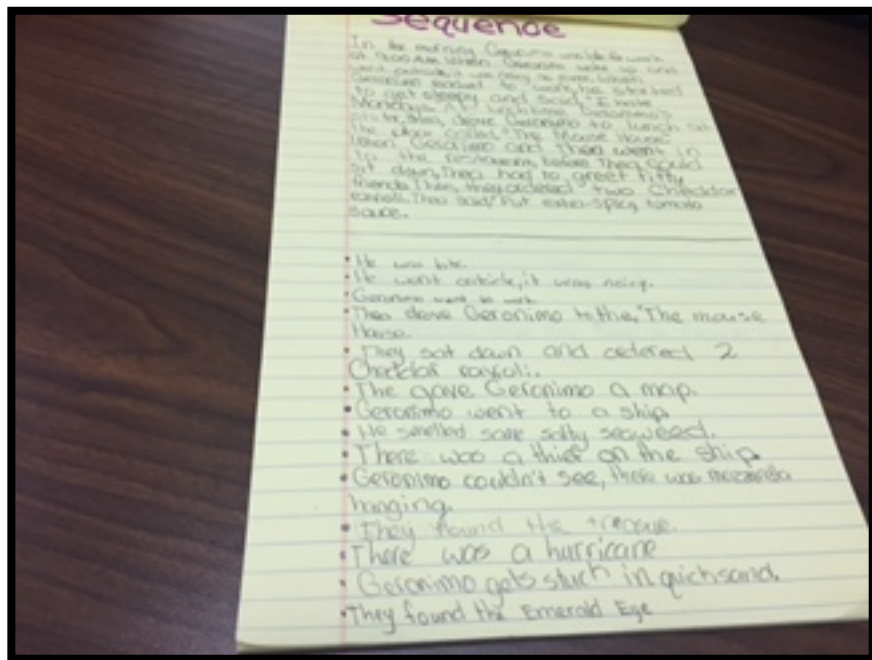 Sequence
In the morning Geronimo was late for work
at 9:00 AM. When Geronimo woke up and
went outside, it was noisy as ever. When
Geronimo walked to work, he started
to get sleepy and said, "I hate
Mondays. At lunchtime, Geronimo's
sister, Thea, drove Geronimo to lunch at
the place called, "The Mouse House."
When Geronimo and Thea went in
to the restaurant, before Thea could
sit down, Thea had to greet fifty
friends. Then, they ordered two Cheddar
ravioli. Thea said, "Put extra-spicy tomato
sauce.
• He was late.
• He went outside, it was noisy.
• Geronimo went to work
• Thea drove Geronimo to the, "The mouse
House.
• They sat down and ordered 2
Cheddar ravioli.
• The gave Geronimo a map.
• Geronimo went to a ship
• He smelled some salty seaweed.
• There was a thief on the ship.
• Geronimo couldn't see, there was mozzarella
hanging.
• They found the
• There was a hurricane
• Geronimo gets stuck in quicksand.
• They found the Emerald Eye